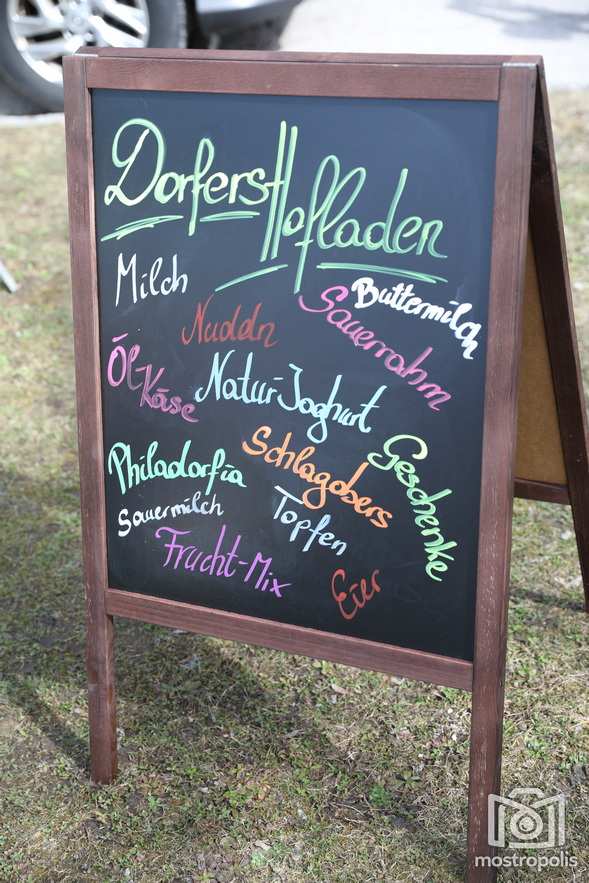 Dorfers Hofladen
Milch
Buttermilch
Nudeln
Sauerrahm
Öl
Käse
Natur-Joghurt
Philadorfia
Schlagobers
Geschenke
Sauermilch
Topfen
Frucht-Mix
Eier
mostropolis